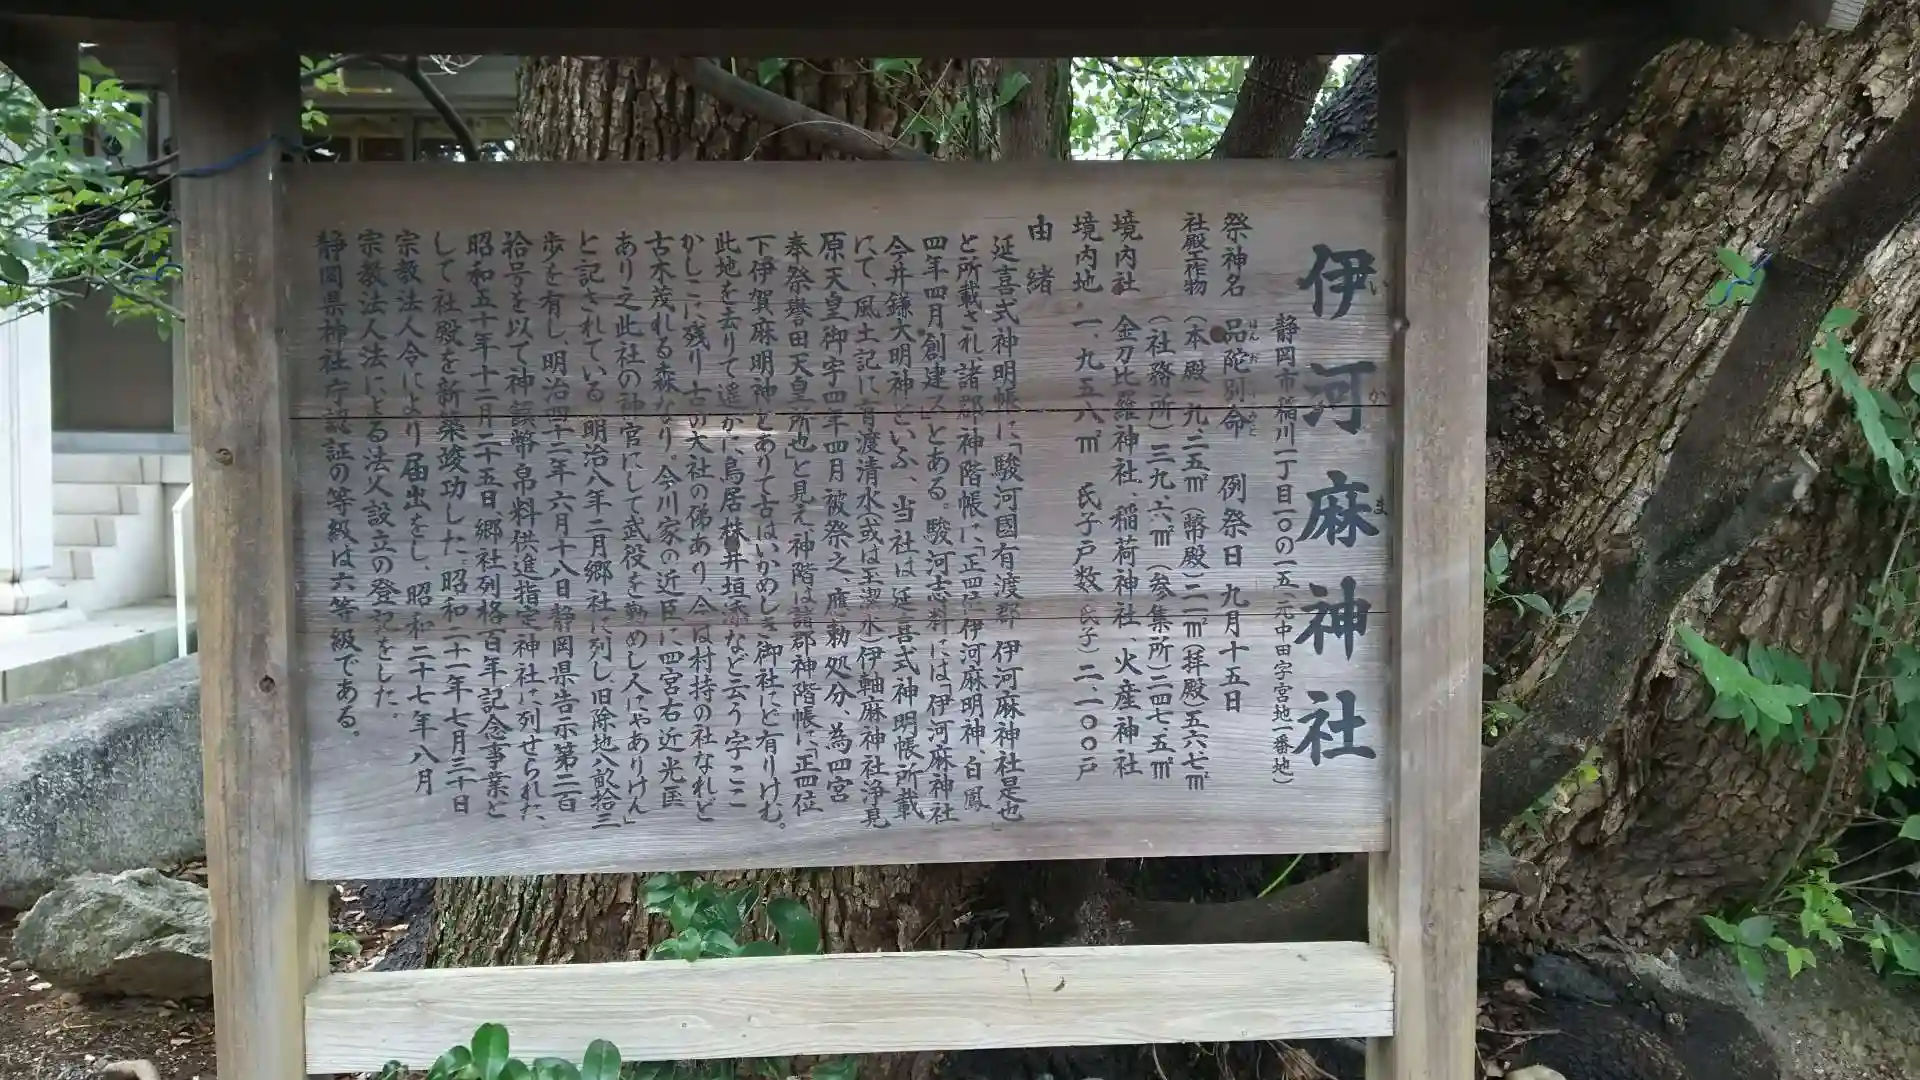 伊河麻神社
静岡市稲川一丁目一〇の一五(元中田字宮地一番地)
祭神名 品陀別命 例祭日 九月十五日
社殿工作物 (本殿)九.二五㎡(幣殿)二二㎡(拝殿)五六.七㎡
(社務所)三九.六㎡(参集所)二四七.五㎡
境内社 金刀比羅神社、稲荷神社、火産神社
境内地 一、九五八㎡ 氏子戸数(氏子)二、一〇〇戸
由緒
延喜式神明帳に「駿河國有渡郡 伊河麻神社是也」
と所載され諸郡神階帳に「正四位伊河麻明神 白鳳
四年四月創建ス」とある。駿河志料には「伊河麻神社
今井鎌大明神といふ、当社は延喜式神明帳所載
にて、風土記に有渡清水(或は玉潔水)伊軸麻神社浄見
原天皇御宇四年四月被祭之、應勅処分、為四宮
奉祭譽田天皇所也」と見え神階は諸郡神階帳に、正四位
下伊賀麻明神とありて古はいかめしき御社にど有りけむ。
此地を去りて遙かに鳥居株井垣添など云う字ここ
かしこに残り古の大社の俤あり、今は村持の社なれど
古木茂れる森なり。今川家の近臣に四宮右近光匡
あり之此社の神官にして武役を勤めし人にやありけん」
と記されている。明治八年二月郷社に列し旧除地八畝拾三
歩を有し、明治四十二年六月十八日静岡県告示第二百
拾号を以て神饌幣帛料供進指定神社に列せられた、
昭和五十年十二月二十五日、郷社列格百年記念事業と
して社殿を新築竣功した。昭和二十一年七月三十日
宗教法人令により届出をし、昭和二十七年八月
宗教法人法による法人設立の登記をした。
静岡県神社庁認証の等級は六等級である。